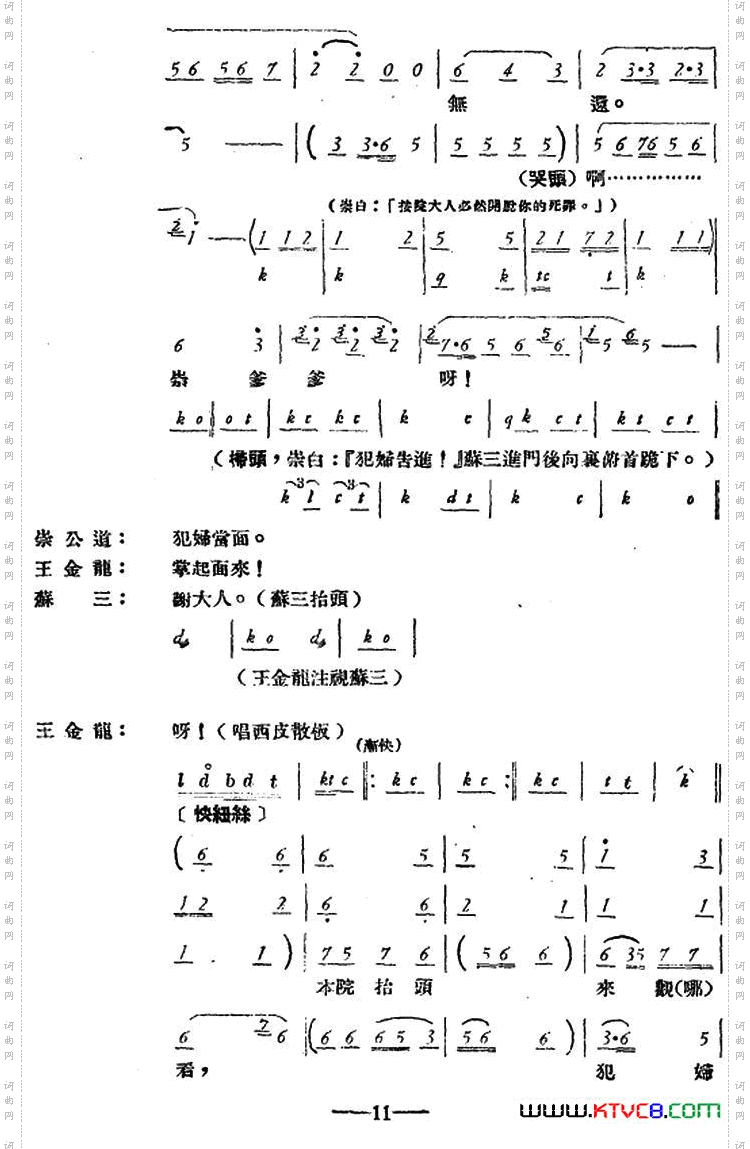 56 56 7 | 2 2 0 0 | 6 4 3 | 2 3·3 2·3 |
無 還。
5 —— | ( 3 3·6 5 | 5 5 5 5 ) | 5 6 76 5 6 |
(哭頭) 啊……………
(崇白:「按院大人必然開脫你的死罪。」)
2 1 —— ( 1 12 | 1 2 | 5 5 | 21 72 | 1 11 )
k k q k tc t k
6 3 | 3 2 3 2 3 2 | 2 7·6 5 6 5 6 | 1 5 6 5 —— |
崇 爹 爹 呀!
k o || o t | kc kc | k c | qk ct | kt ct |
(掃頭,崇白:『犯婦告進!』蘇三進門後向裏俯首跪下。)
3 3
k l c t | k dt | k c | k o ||
崇公道: 犯婦當面。
王金龍: 掌起面來!
蘇 三: 謝大人。(蘇三抬頭)
d | k o d | k o |
(王金龍注視蘇三)
王金龍: 呀!(唱西皮散板)
(漸快)
l d b d t | kt c ||: kc | kc :|| kc | t t | k ||
〔快紐絲〕
( 6 6 | 6 5 | 5 5 | 1 3 |
12 2 | 6 6 | 2 1 | 1 1 |
1 . 1 ) | 7 5 7 6 | ( 56 6 ) | 6 35 7 7 |
本院 抬 頭 來 觀(哪)
6 7 6 | ( 6 6 6 5 3 | 56 6 ) | 3·6 5 |
看, 犯 婦
——11——
www.KTVC8.com
词曲网